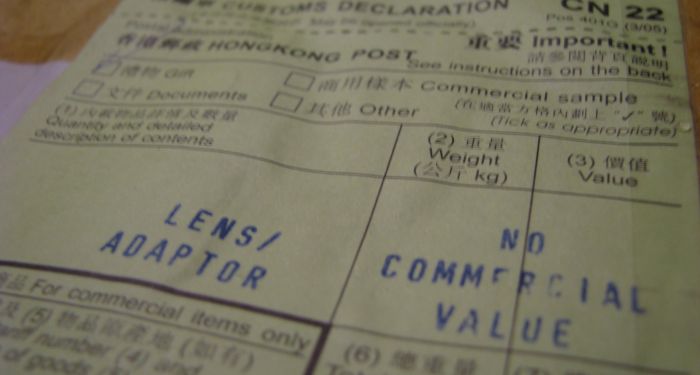 CUSTOMS DECLARATION
CN 22
May be opened officially
Pos 401G (3/05)
香港郵政 HONGKONG POST
重要 Important!
請參閱背頁說明
See instructions on the back
禮物 Gift
商用樣本 Commercial sample
文件 Documents
其他 Other
(在適當方格內劃上 "✓" 號)
(Tick as appropriate)
(1) 內載物品詳情及數量
Quantity and detailed
description of contents
(2) 重量
Weight
(公斤 kg)
(3) 價值
Value
LENS/
ADAPTOR
NO
COMMERCIAL
VALUE
品 For commercial items only
及 (5) 物品原產地 (如有)
number (4) and
of goods (5)
(6) 總重量
(7)